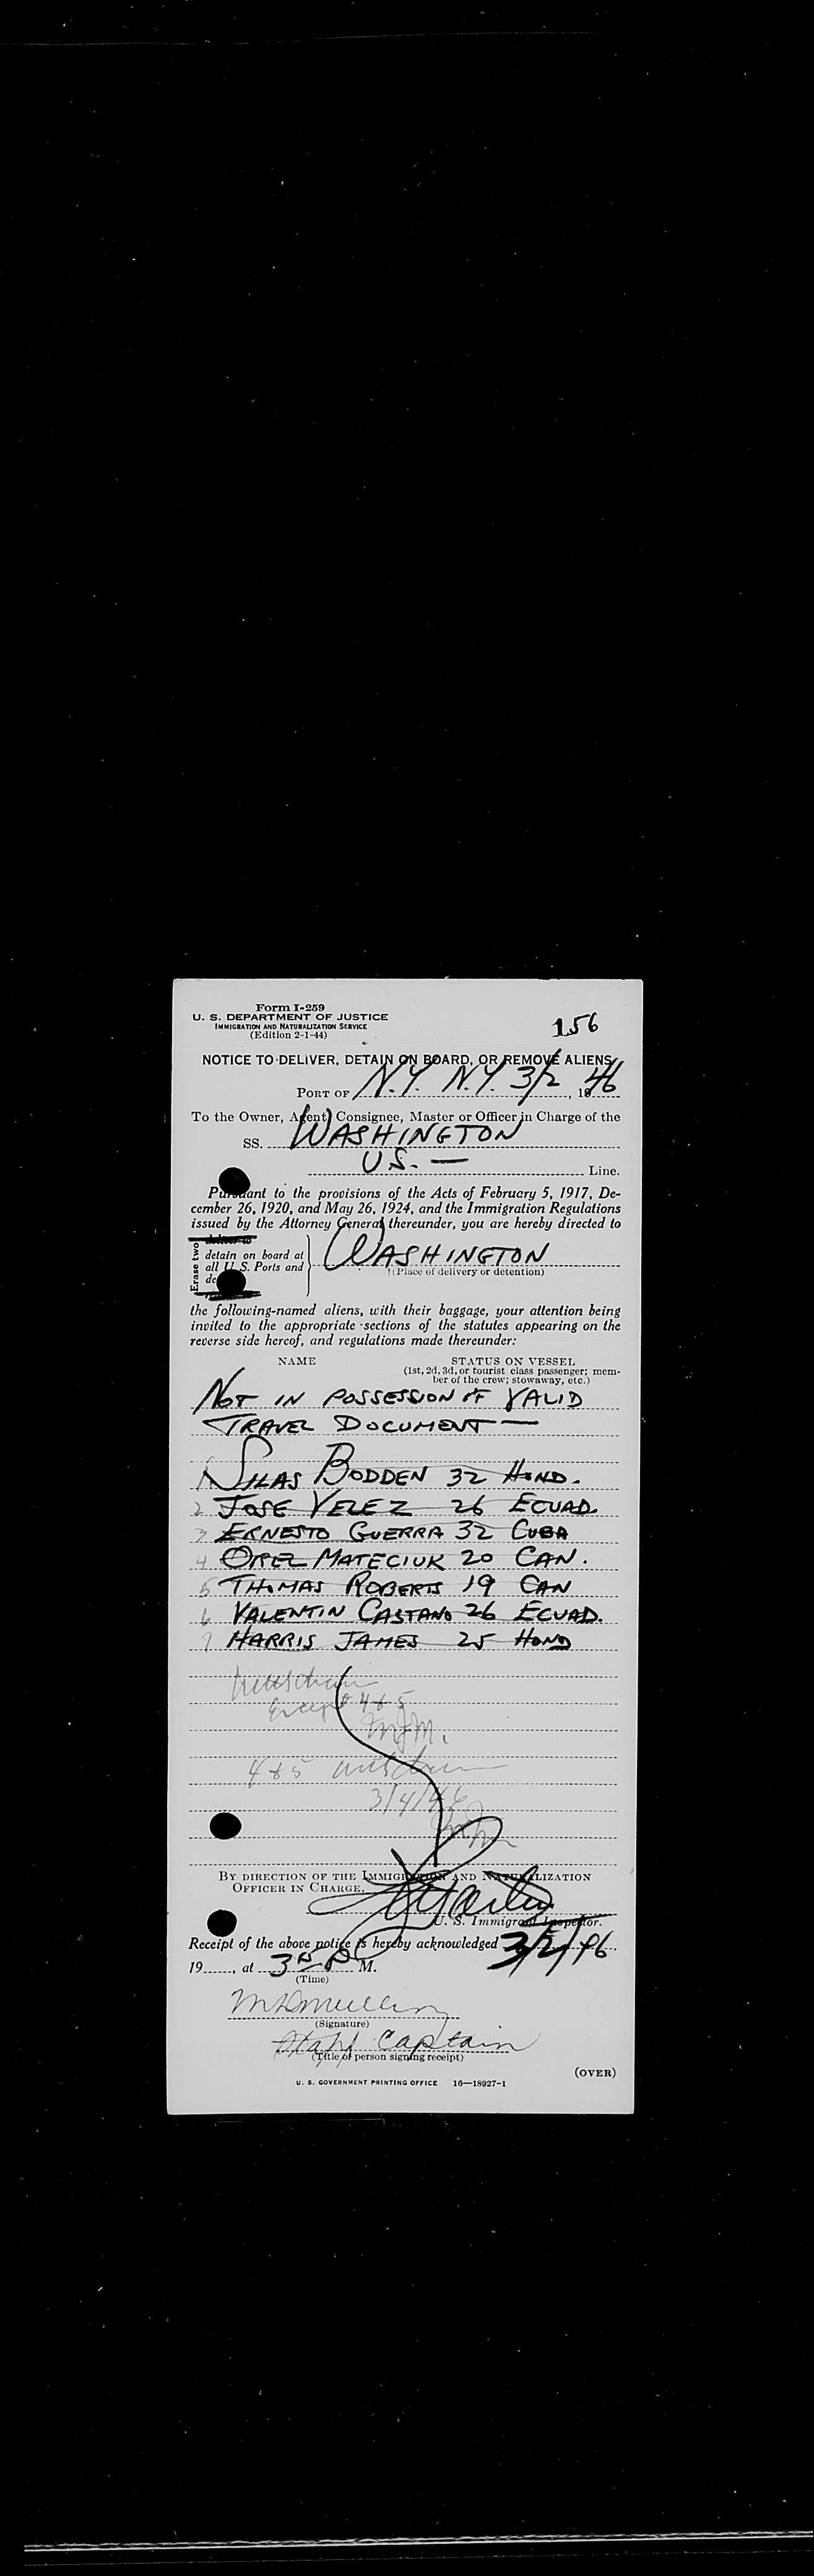 Form I-259
U. S. DEPARTMENT OF JUSTICE
IMMIGRATION AND NATURALIZATION SERVICE
(Edition 2-1-44)
156
NOTICE TO DELIVER, DETAIN ON BOARD, OR REMOVE ALIENS
PORT OF N.Y. N.Y. 3/2, 1946
To the Owner, Agent, Consignee, Master or Officer in Charge of the
SS. WASHINGTON
U.S. — Line.
Pursuant to the provisions of the Acts of February 5, 1917, De-
cember 26, 1920, and May 26, 1924, and the Immigration Regulations
issued by the Attorney General thereunder, you are hereby directed to
Erase two
deliver to
detain on board at
all U. S. Ports and
WASHINGTON
(Place of delivery or detention)
the following-named aliens, with their baggage, your attention being
invited to the appropriate sections of the statutes appearing on the
reverse side hereof, and regulations made thereunder:
NAME STATUS ON VESSEL
(1st, 2d, 3d, or tourist class passenger; mem-
ber of the crew; stowaway, etc.)
NOT IN POSSESSION OF VALID
TRAVEL DOCUMENT —
1 SILAS BODDEN 32 HOND.
2 JOSE VELEZ 26 ECUAD.
3 ERNESTO GUERRA 32 CUBA
4 OREL MATECIUK 20 CAN.
5 THOMAS ROBERTS 19 CAN
6 VALENTIN CASTANO 26 ECUAD.
7 HARRIS JAMES 25 HOND
Except 4 + 5
4 + 5
3/4/46
BY DIRECTION OF THE IMMIGRATION AND NATURALIZATION
OFFICER IN CHARGE.
U. S. Immigrant Inspector.
Receipt of the above notice is hereby acknowledged 3/2/46.
19......, at 3 15 P M.
(Time)
(Signature)
Staff Captain
(Title of person signing receipt)
(OVER)
U. S. GOVERNMENT PRINTING OFFICE 16—18927-1